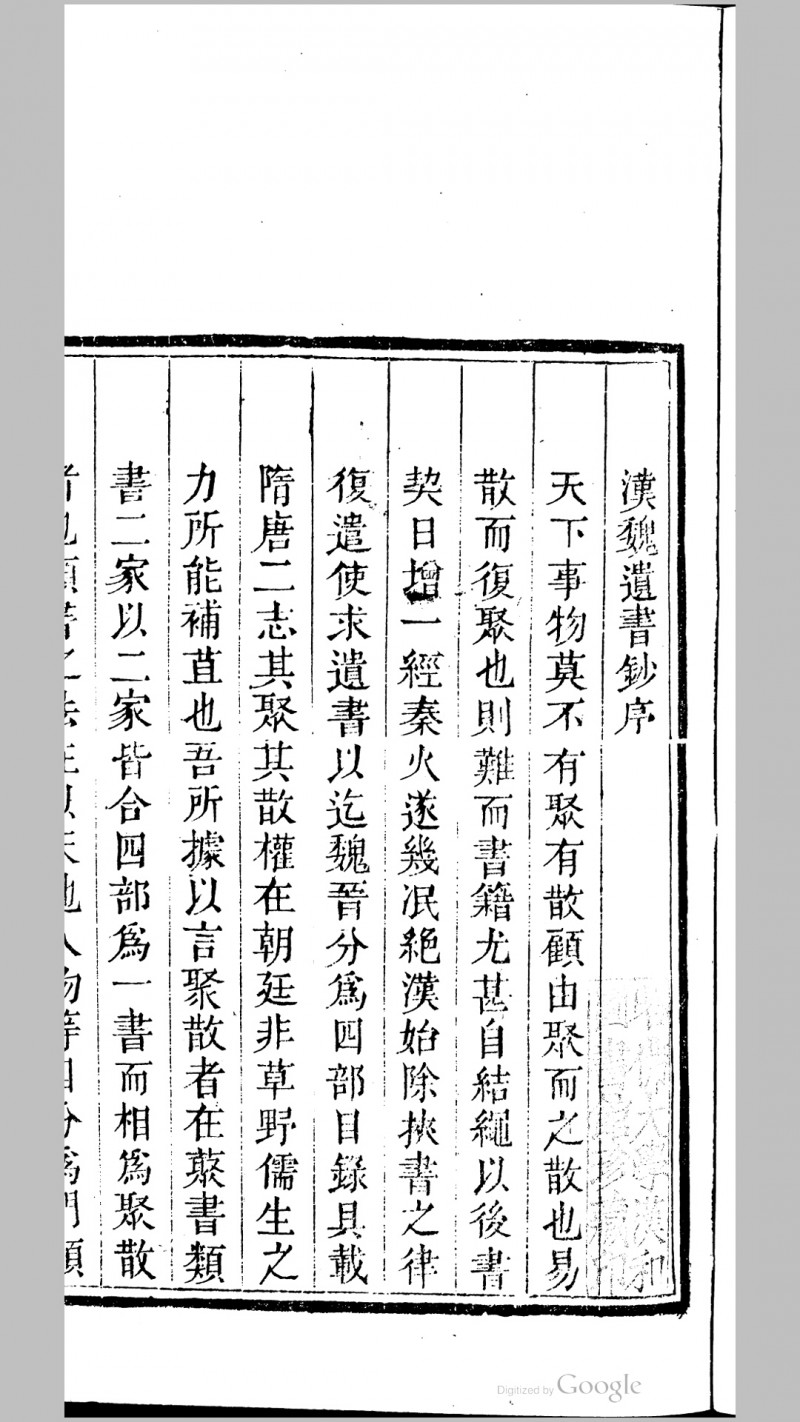 漢魏遺書鈔序
天下事物莫不有聚有散顧由聚而之散也易
散而復聚也則難而書籍尤甚自結繩以後書
契日增一經秦火遂幾冺絕漢始除挾書之律
復遣使求遺書以迄魏晉分爲四部目錄具載
隋唐二志其聚其散權在朝廷非草野儒生之
力所能補苴也吾所據以言聚散者在蕞書類
書二家以二家皆合四部爲一書而相爲聚散
天地人物等目分爲門類
Digitized by Google